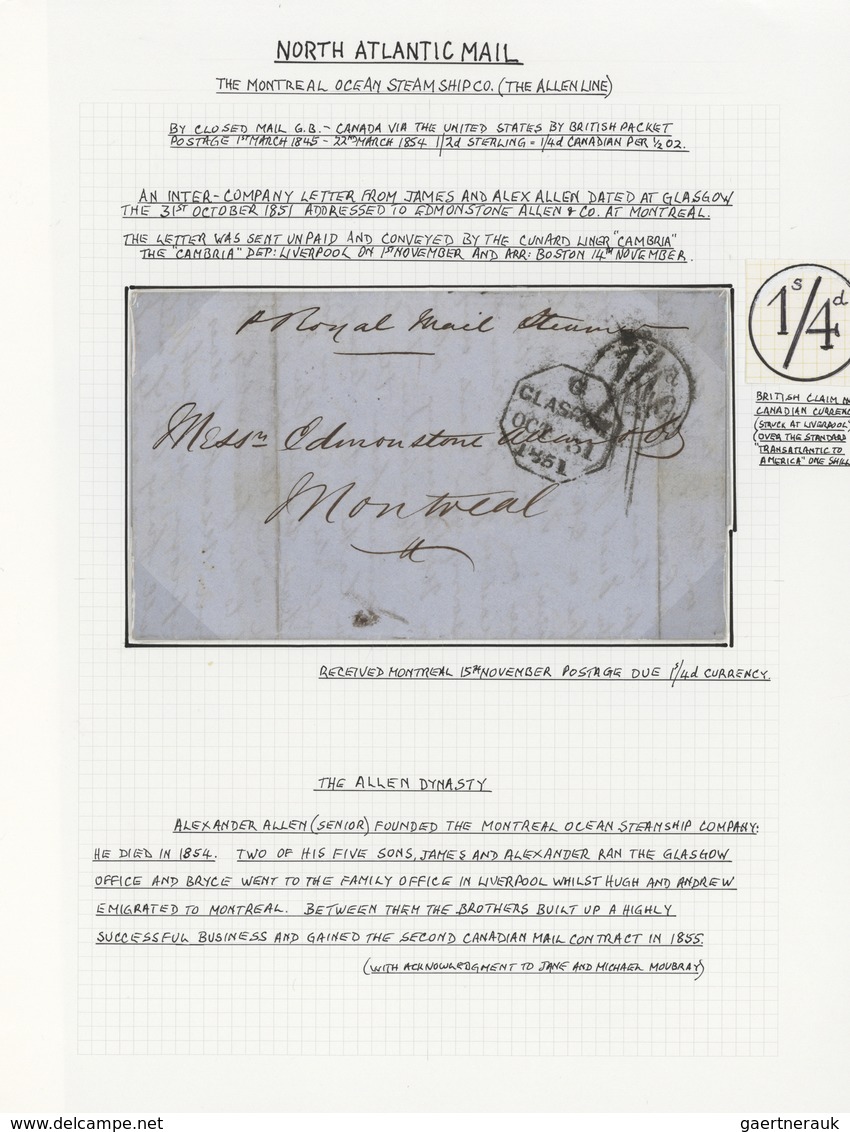 NORTH ATLANTIC MAIL
THE MONTREAL OCEAN STEAMSHIP CO. (THE ALLEN LINE)
BY CLOSED MAIL G.B. - CANADA VIA THE UNITED STATES BY BRITISH PACKET
POSTAGE 1ST MARCH 1845 - 22ND MARCH 1854 1/2d STERLING = 1/4d CANADIAN PER ½ OZ.
AN INTER-COMPANY LETTER FROM JAMES AND ALEX ALLEN DATED AT GLASGOW
THE 31ST OCTOBER 1851 ADDRESSED TO EDMONSTONE ALLEN & CO. AT MONTREAL.
THE LETTER WAS SENT UNPAID AND CONVEYED BY THE CUNARD LINER "CAMBRIA"
THE "CAMBRIA" DEP: LIVERPOOL ON 1ST NOVEMBER AND ARR: BOSTON 14TH NOVEMBER.
1s/4d
BRITISH CLAIM
CANADIAN CURRENC
(STRUCK AT LIVERPOOL)
(OVER THE STANDARD
"TRANSATLANTIC TO
AMERICA" ONE SHILL
p Royal Mail Steamer
G
GLASGOW
OCT 31
1851
Messrs Edmonstone Allan & Co
Montreal
RECEIVED MONTREAL 15TH NOVEMBER POSTAGE DUE 1s/4d CURRENCY.
THE ALLEN DYNASTY
ALEXANDER ALLEN (SENIOR) FOUNDED THE MONTREAL OCEAN STEAMSHIP COMPANY:
HE DIED IN 1854. TWO OF HIS FIVE SONS, JAMES AND ALEXANDER RAN THE GLASGOW
OFFICE AND BRYCE WENT TO THE FAMILY OFFICE IN LIVERPOOL WHILST HUGH AND ANDREW
EMIGRATED TO MONTREAL. BETWEEN THEM THE BROTHERS BUILT UP A HIGHLY
SUCCESSFUL BUSINESS AND GAINED THE SECOND CANADIAN MAIL CONTRACT IN 1855.
(WITH ACKNOWLEDGMENT TO JANE AND MICHAEL MOUBRAY)
www.delcampe.net
gaertnerauk